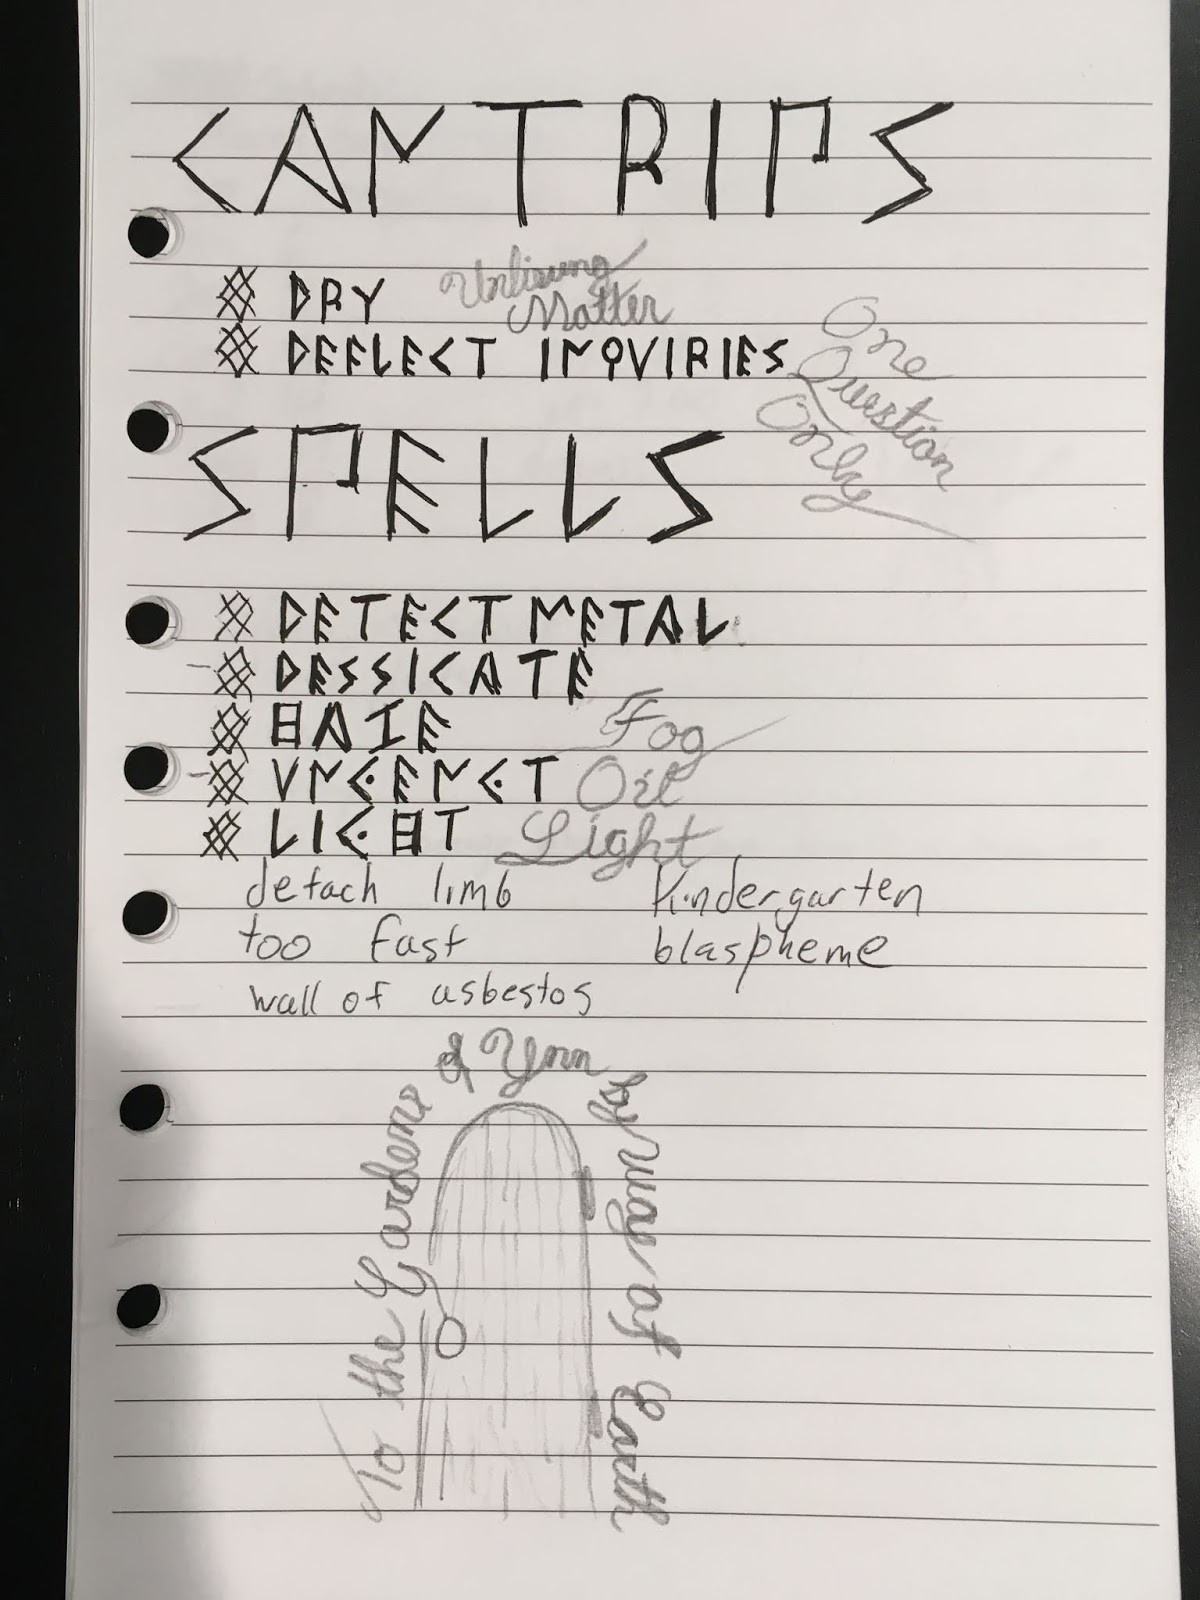 CANTRIPS
DRY Unliving Matter
DEFLECT INQVIRIES One Question Only
SPELLS
DETECT METAL
DESSICATE
HAZE Fog
VNGENGT Oil
LIGHT Light
detach limb kindergarten
too fast blaspheme
wall of asbestos
To the Gardens of Ynn by way of Earth